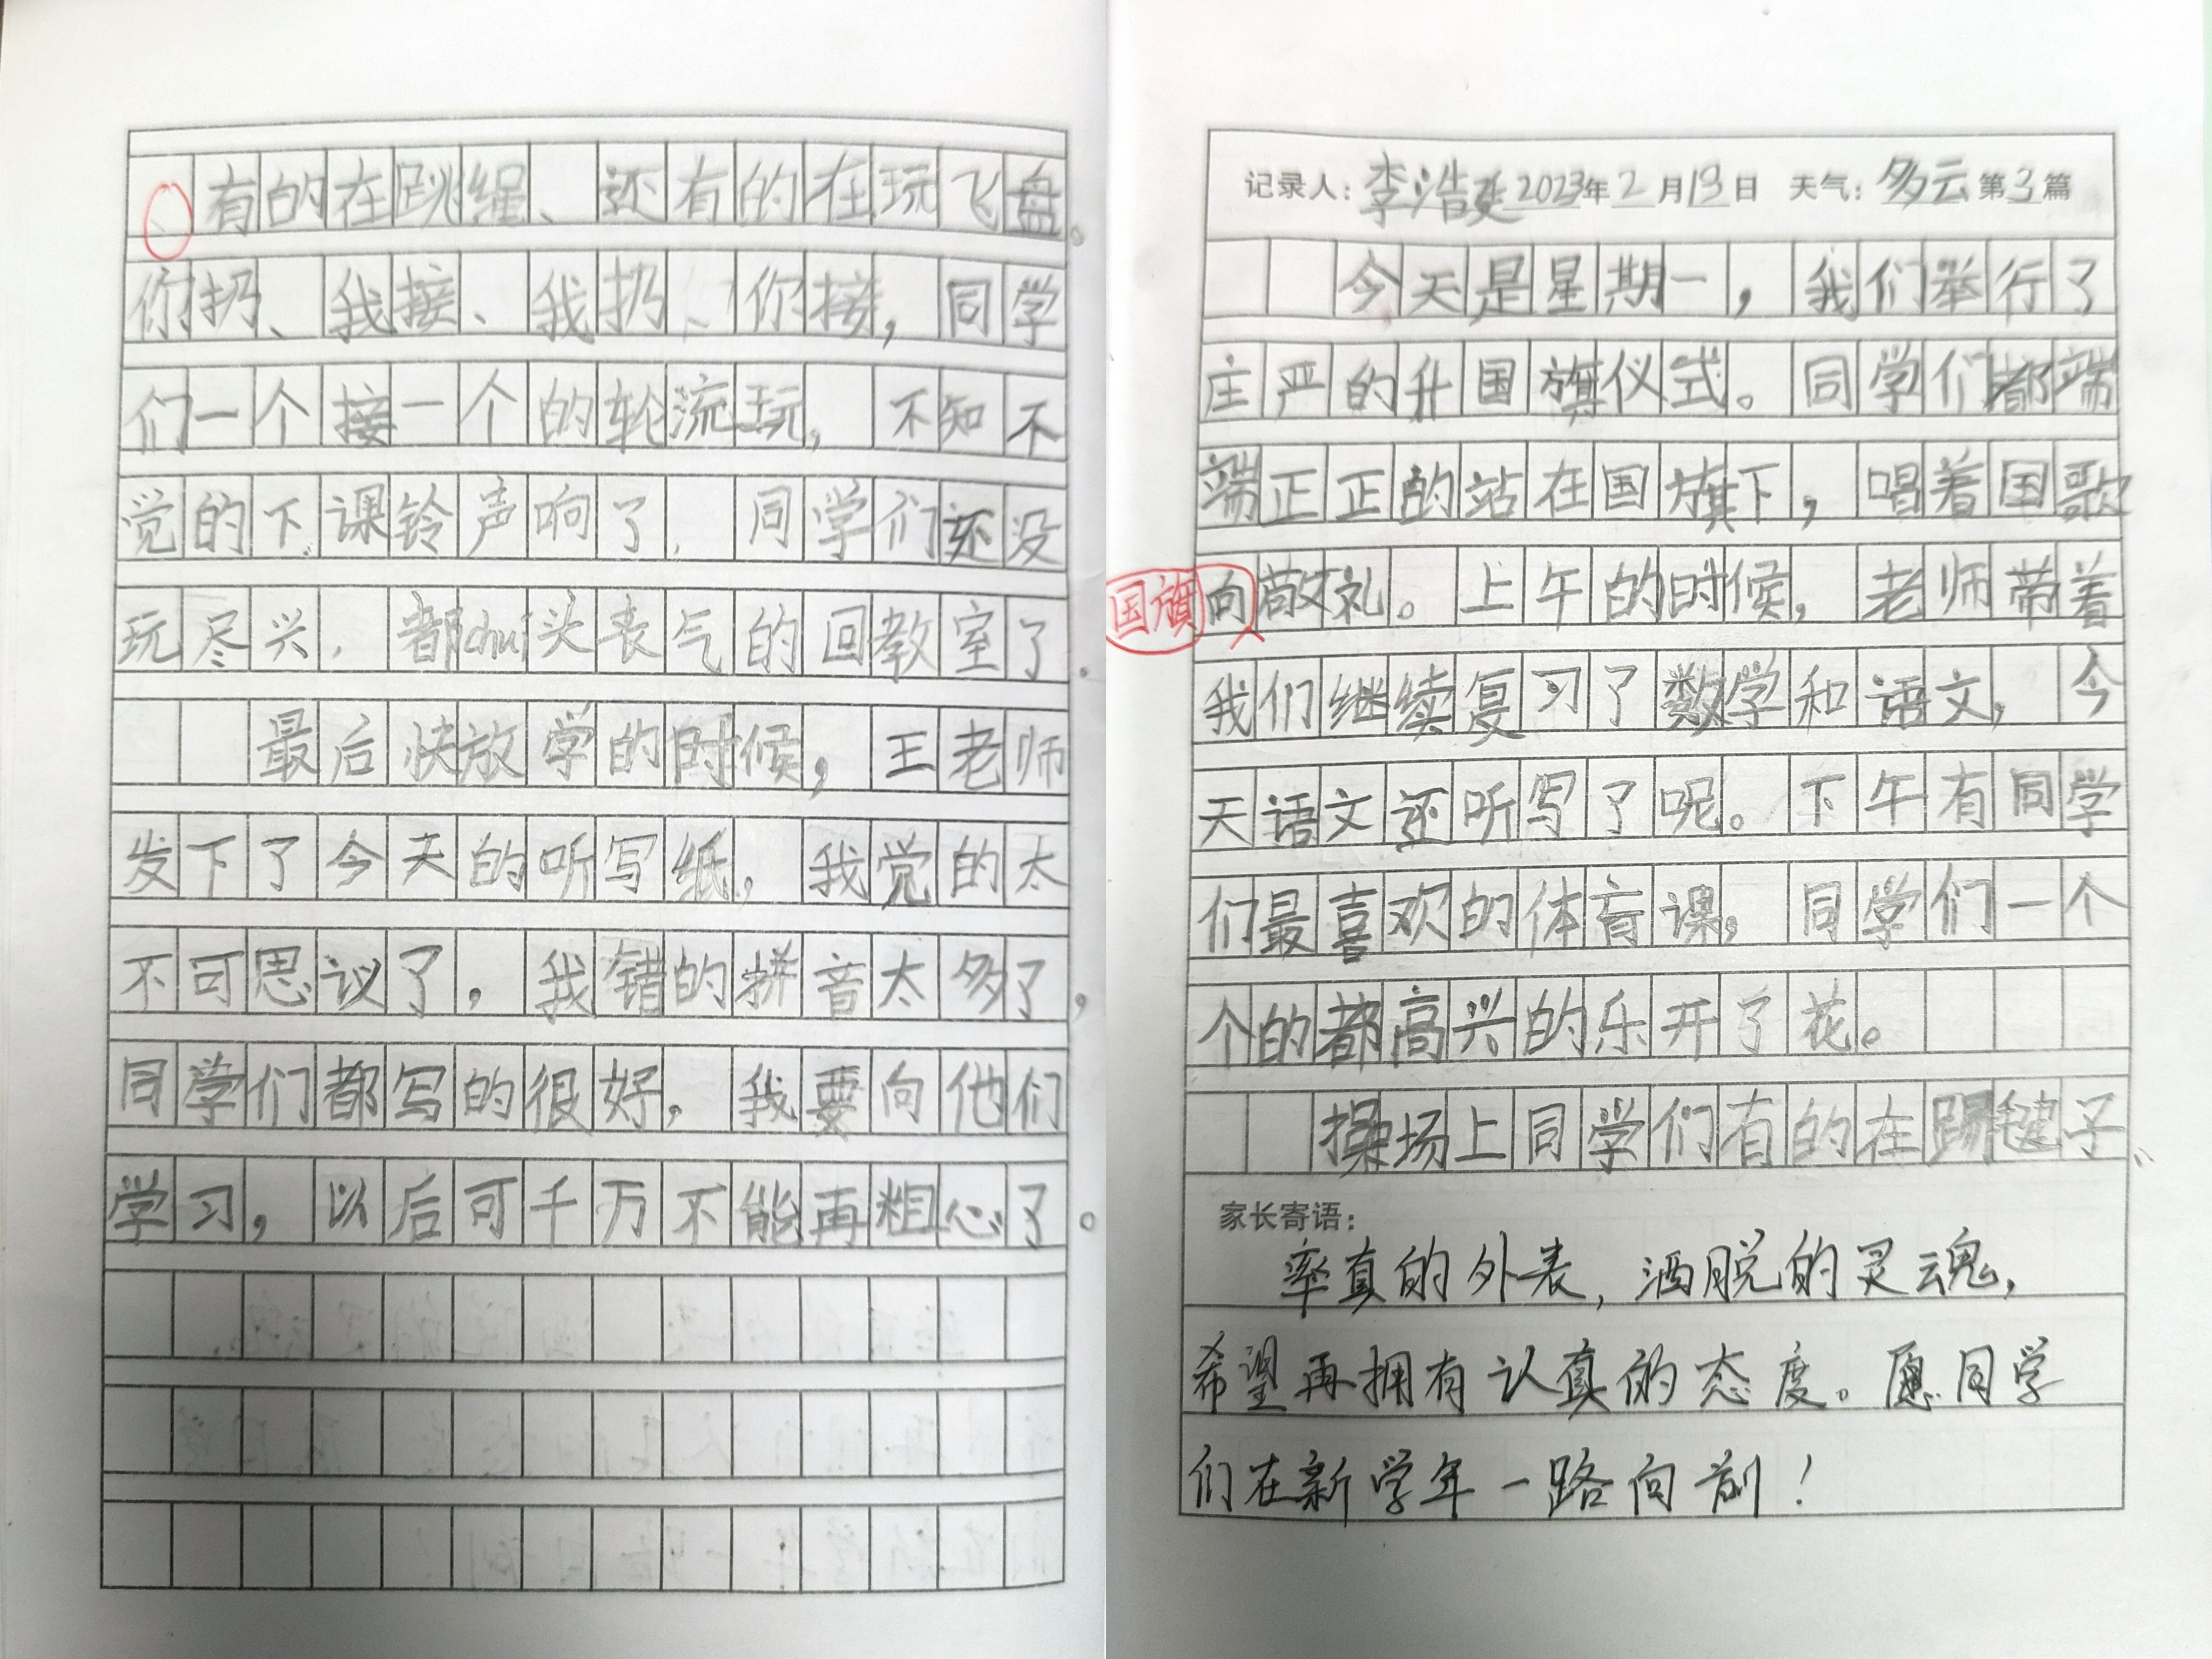 记录人：李浩延 2023年2月13日 天气：多云 第3篇
今天是星期一，我们举行了
庄严的升国旗仪式。同学们都端
端正正的站在国旗下，唱着国歌
国旗向敬礼。上午的时候，老师带着
我们继续复习了数学和语文，今
天语文还听写了呢。下午有同学
们最喜欢的体育课，同学们一个
个的都高兴的乐开了花。
操场上同学们有的在踢毽子、
家长寄语：
率真的外表，洒脱的灵魂，
希望再拥有认真的态度。愿同学
们在新学年一路向前！
、有的在跳绳、还有的在玩飞盘。
你扔、我接、我扔、你接，同学
们一个接一个的轮流玩，不知不
觉的下课铃声响了，同学们还没
玩尽兴，都chui头丧气的回教室了。
最后快放学的时候，王老师
发下了今天的听写纸，我觉的太
不可思议了，我错的拼音太多了，
同学们都写的很好，我要向他们
学习，以后可千万不能再粗心了。